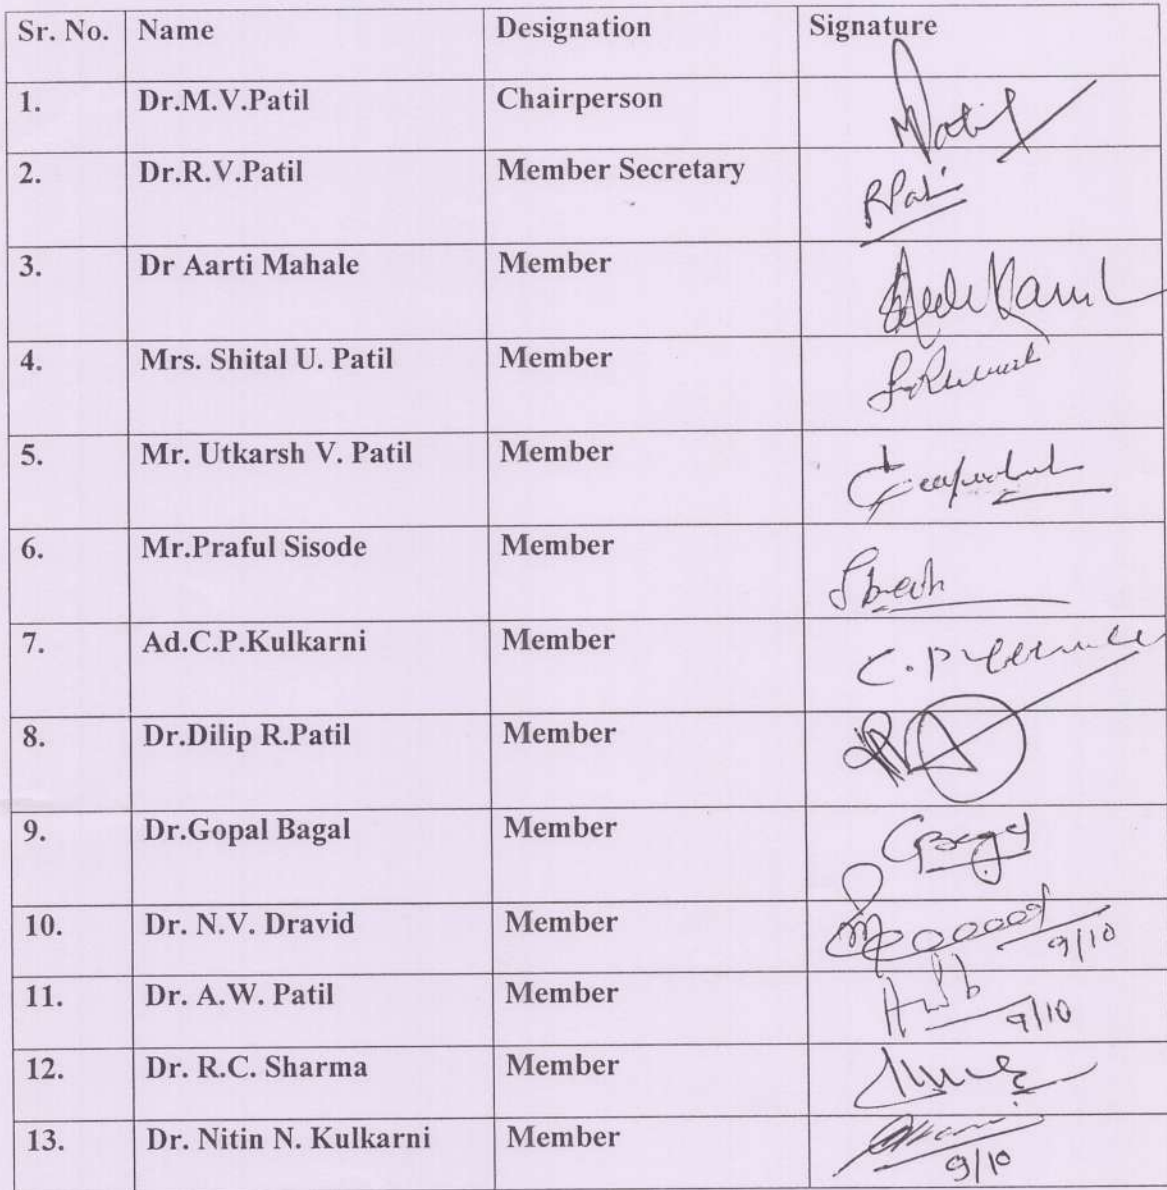 Sr. No. Name Designation Signature
1. Dr.M.V.Patil Chairperson MPatil
2. Dr.R.V.Patil Member Secretary RPati
3. Dr Aarti Mahale Member
4. Mrs. Shital U. Patil Member
5. Mr. Utkarsh V. Patil Member
6. Mr.Praful Sisode Member
7. Ad.C.P.Kulkarni Member C.P
8. Dr.Dilip R.Patil Member
9. Dr.Gopal Bagal Member GBagal
10. Dr. N.V. Dravid Member 9/10
11. Dr. A.W. Patil Member 9/10
12. Dr. R.C. Sharma Member
13. Dr. Nitin N. Kulkarni Member 9/10